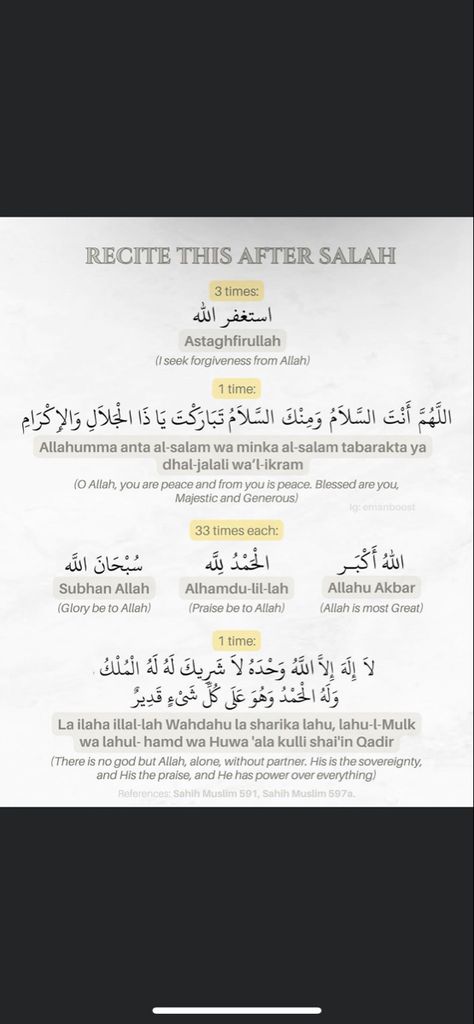 RECITE THIS AFTER SALAH
3 times:
استغفر الله
Astaghfirullah
(I seek forgiveness from Allah)
1 time:
اللَّهُمَّ أَنْتَ السَّلاَمُ وَمِنْكَ السَّلاَمُ تَبَارَكْتَ يَا ذَا الْجَلاَلِ وَالإِكْرَامِ
Allahumma anta al-salam wa minka al-salam tabarakta ya
dhal-jalali wa’l-ikram
(O Allah, you are peace and from you is peace. Blessed are you,
Majestic and Generous)
Ig: emanboost
33 times each:
سُبْحَانَ اللَّه الْحَمْدُ لِلَّه اللهُ أَكْبَـر
Subhan Allah Alhamdu-lil-lah Allahu Akbar
(Glory be to Allah) (Praise be to Allah) (Allah is most Great)
1 time:
لاَ إِلَهَ إِلاَّ اللَّهُ وَحْدَهُ لاَ شَرِيكَ لَهُ لَهُ الْمُلْكُ
وَلَهُ الْحَمْدُ وَهُوَ عَلَى كُلِّ شَىْءٍ قَدِيرٌ
La ilaha illal-lah Wahdahu la sharika lahu, lahu-l-Mulk
wa lahul- hamd wa Huwa 'ala kulli shai'in Qadir
(There is no god but Allah, alone, without partner. His is the sovereignty,
and His the praise, and He has power over everything)
References: Sahih Muslim 591, Sahih Muslim 597a.